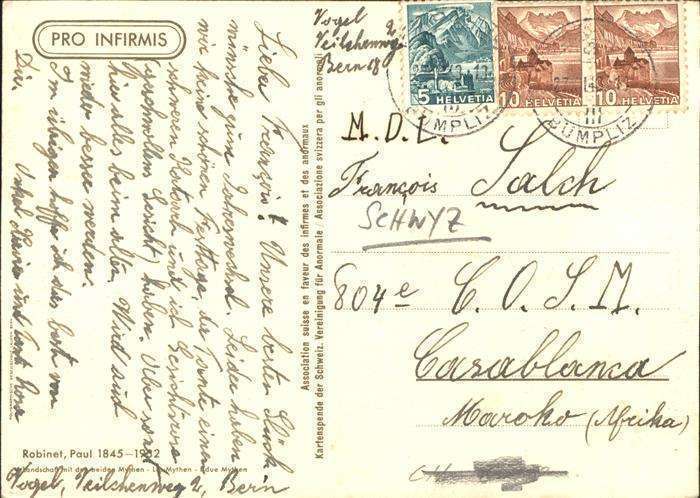 PRO INFIRMIS
Lieber François! Unsere besten Glück-
wünsche zum Jahreswechsel. Leider haben
wir keine schönen Festtage, da Tante einen
schweren Rotlauf und ich Gesichtsrose
(geschwollenes Gesicht) haben. Aber sonst
hier alles beim alten. Wird sich
wieder besser werden.
Im übrigen hoffe ich das beste von
Dir. Onkel und Tante Rosa
Robinet, Paul 1845–1932
Landschaft mit den beiden Mythen - Les Mythen - I due Mythen
Vogel, Veilchenweg 2, Bern
Association suisse en faveur des infirmes et des anormaux Associazione svizzera per gli anormali
Kartenspende der Schweiz. Vereinigung für Anormale
Vogel
Veilchenweg 2
Bern 18
5 HELVETIA
10 HELVETIA
10 HELVETIA
BÜMPLIZ
BÜMPLIZ
M. D. L.
François Salch
SCHWYZ
804e C. O. S. M.
Casablanca
Maroko (Afrika)